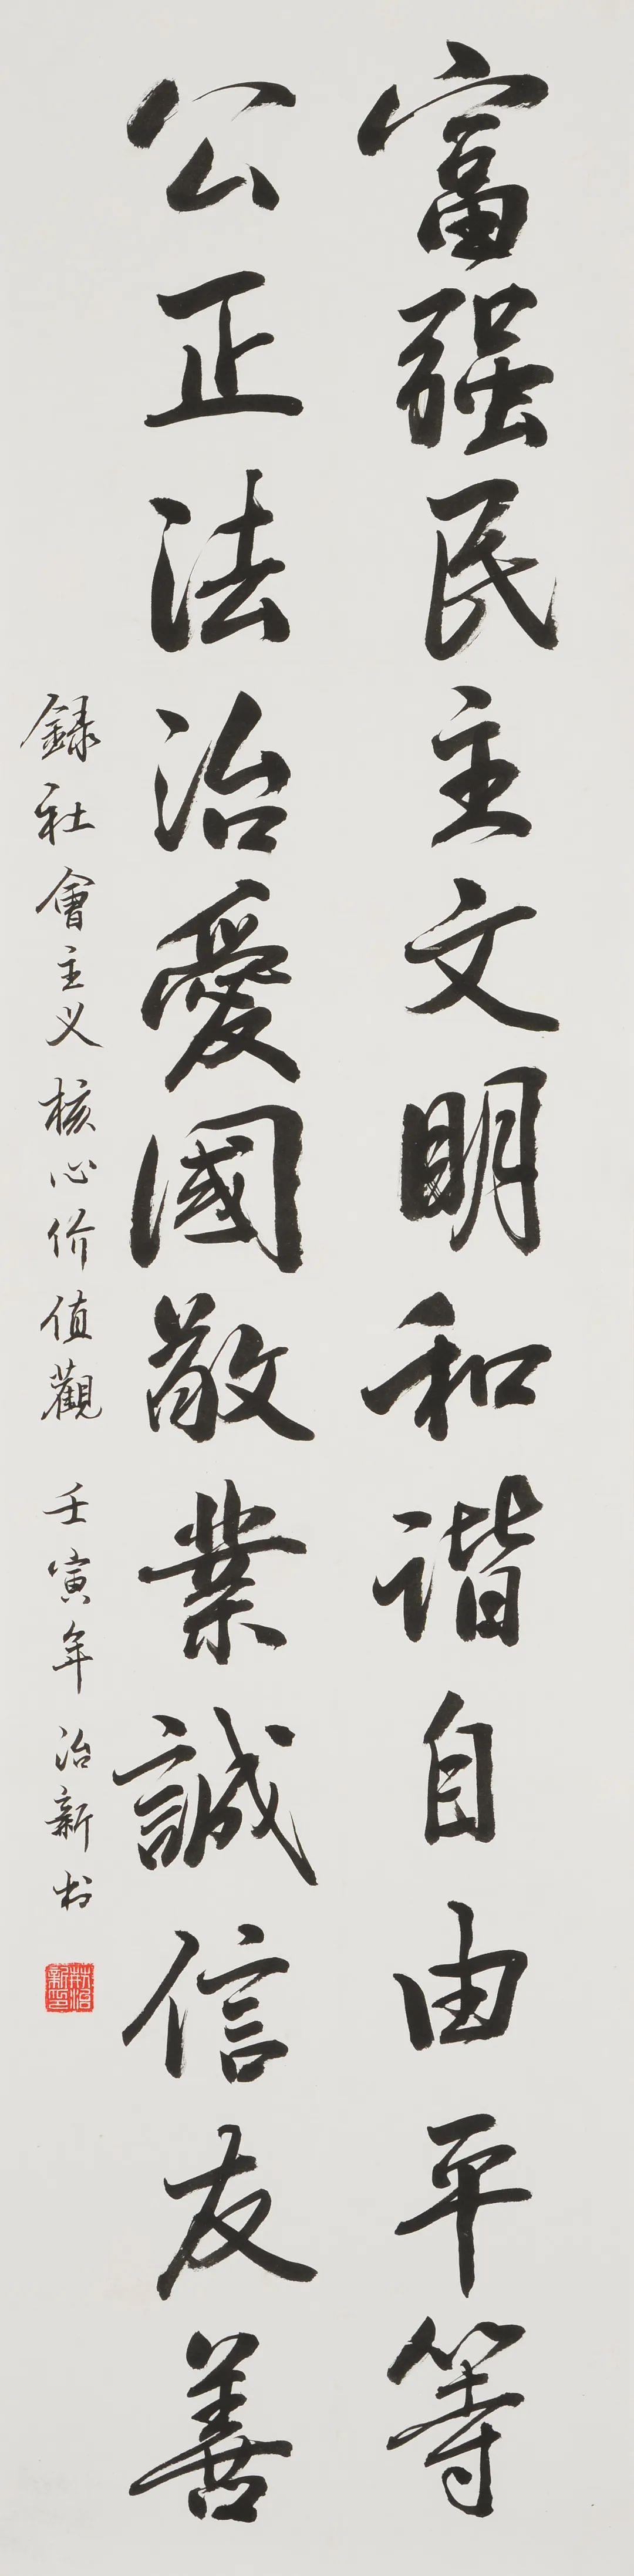 富强民主文明和谐自由平等
公正法治愛國敬業誠信友善
録社會主义核心价值觀 壬寅年 治新书